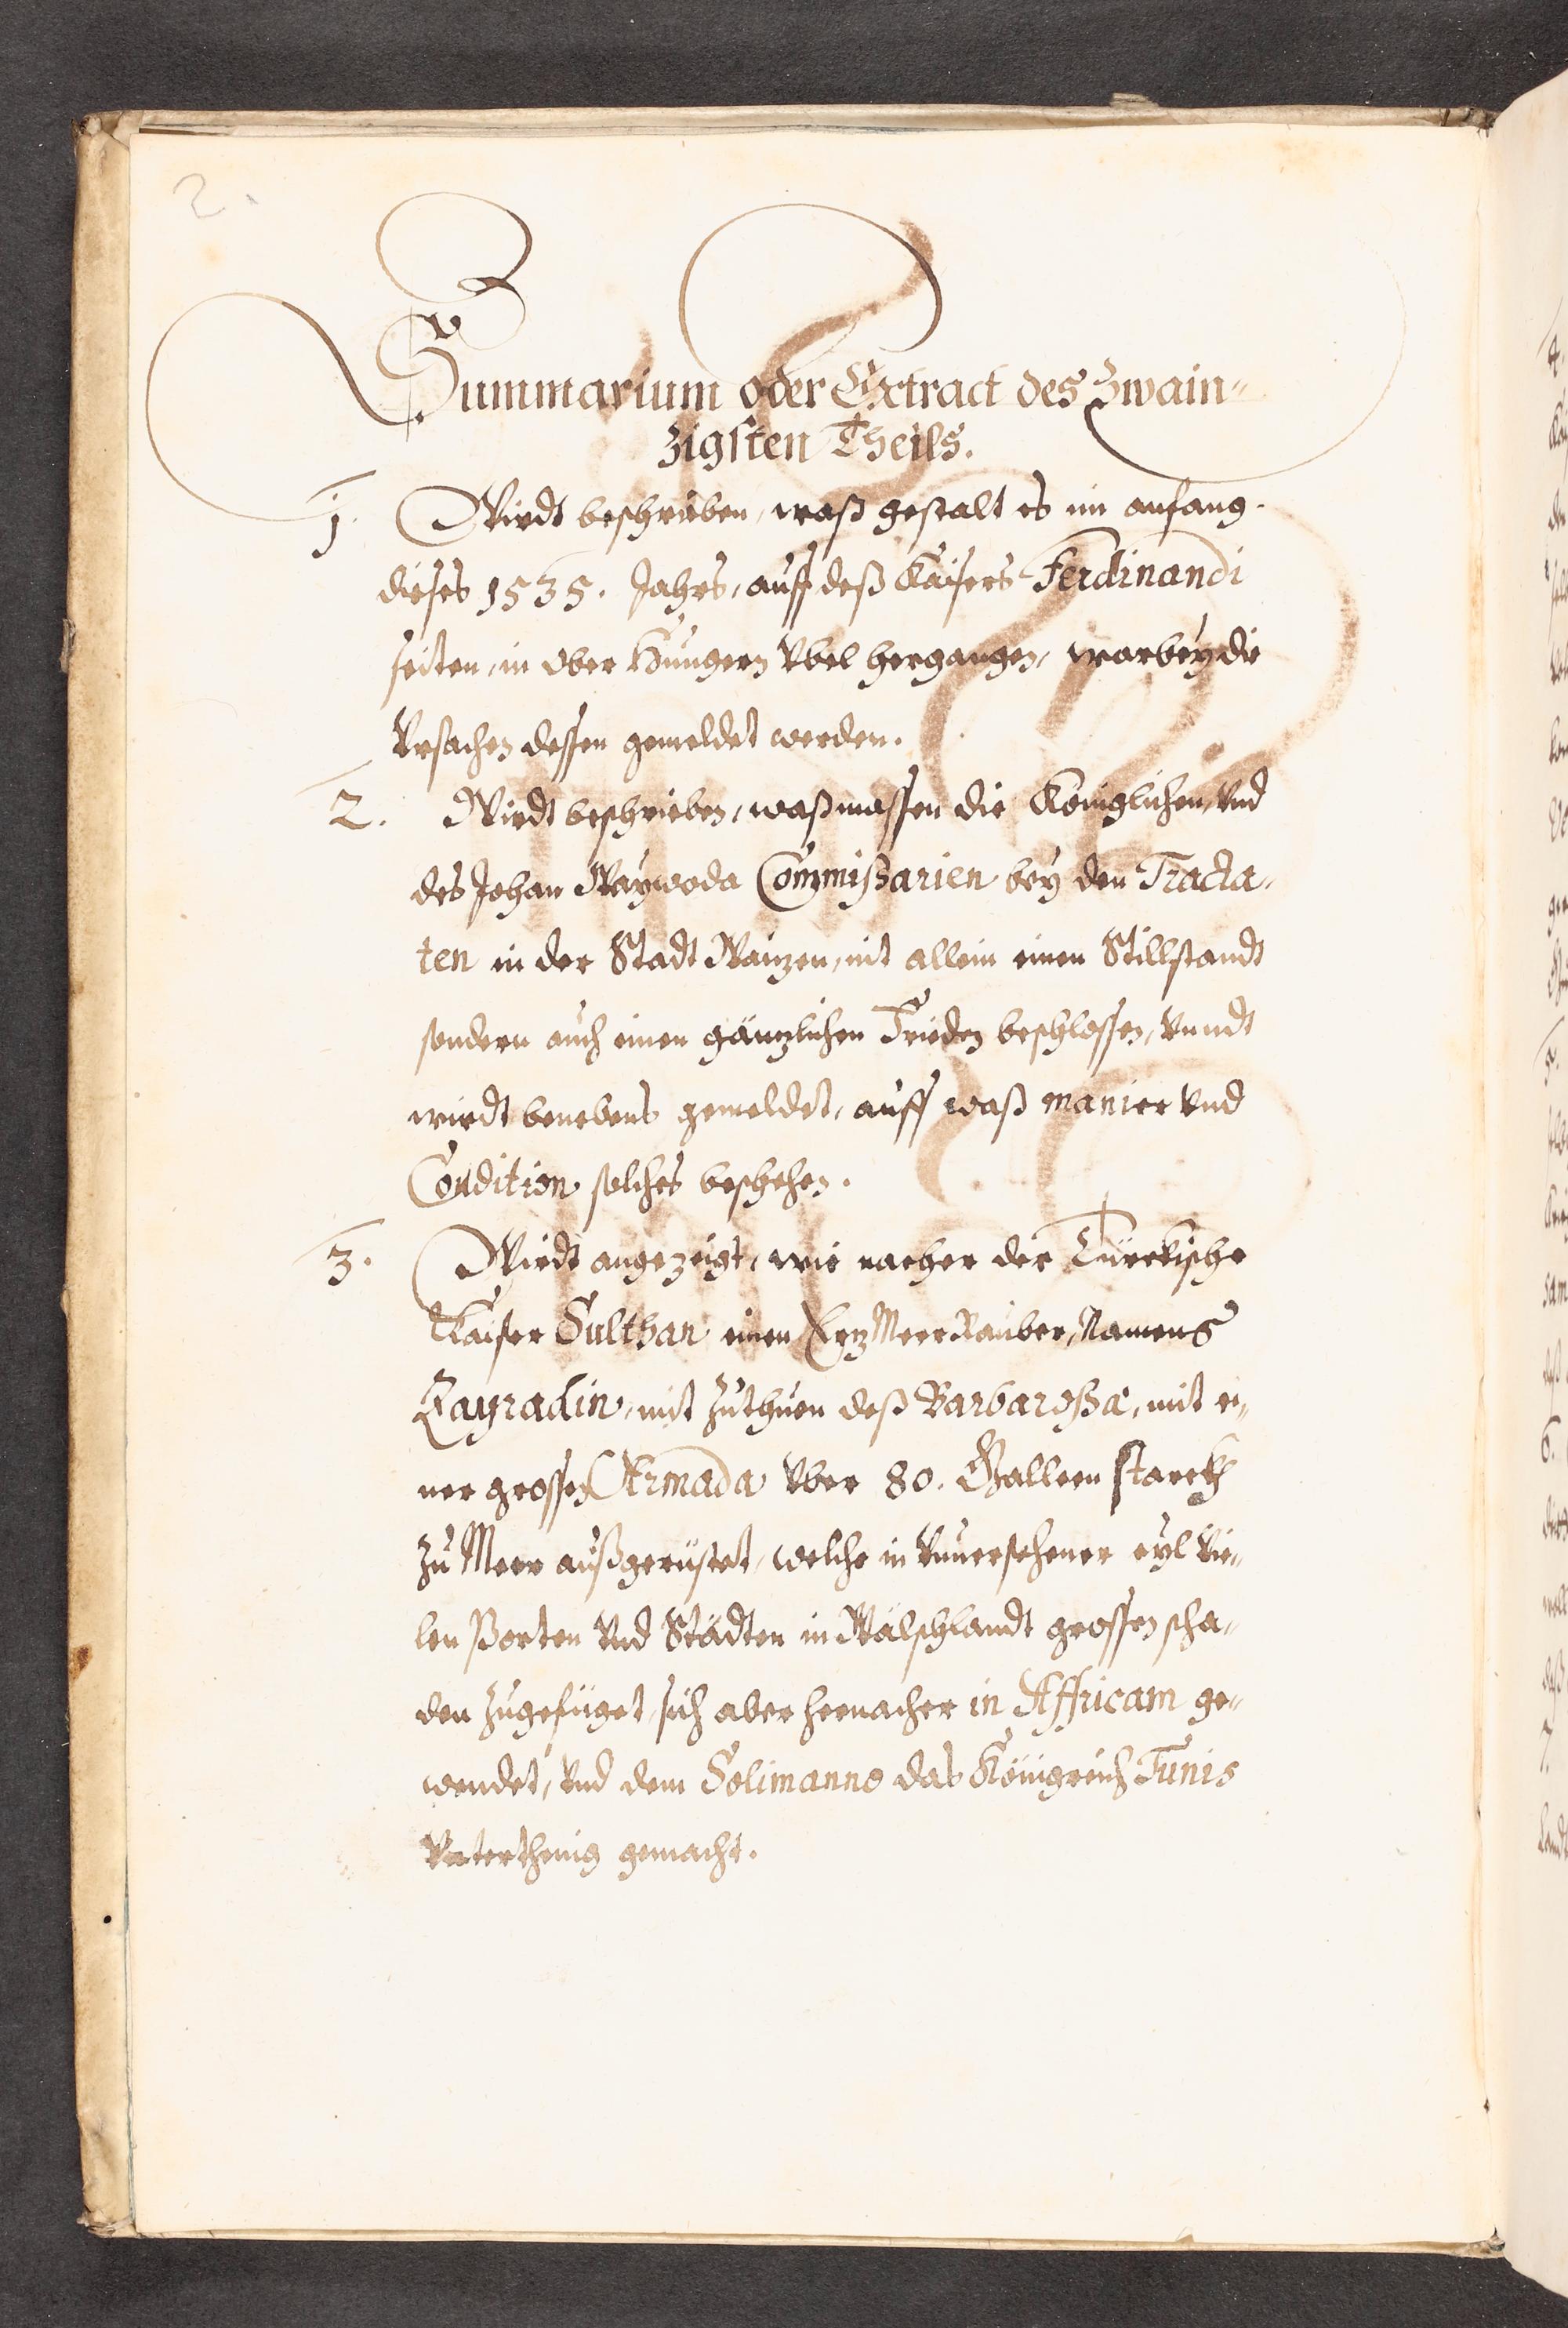 2.
Summarium oder Extract des Zwain-
zigsten Theils.
1. Wirdt beschriben, waß gestalt es im anfang
dieses 1535. Jahrs, auff deß Kaisers Ferdinandi
seiten, in ober Hungern Vbel hergangen, warbey die
Vrsachen dessen gemeldet werden.
2. Wirdt beschrieben, waßmassen die Königlichen, Vnd
des Johan Waywoda Commißarien bey den Tracta-
ten in der Stadt Waizen, nit allein einen Stillstandt
sondern auch einen gänzlichen Frieden beschlossen, Vnndt
wirdt benebens gemeldet, auff waß manier Vnd
Condition solches beschehen.
3. Wirdt angezeigt, wie nacher der Türckische
Kaiser Sulthan einen Erz Meer Rauber, Namens
Cayradin, mit Zuthuen deß Barbaroßæ, mit ei-
ner grossen Armada Vber 80. Galleen starckh
Zu Meer außgerüstet, welche in Vnuersehener eyl Vie-
len Porten Vnd Städten in Wälschlandt grossen scha-
den Zugefüget, sich aber hernacher in Affricam ge-
wendet, Vnd dem Solimanno das Königreich Tunis
Vnterthenig gemacht.